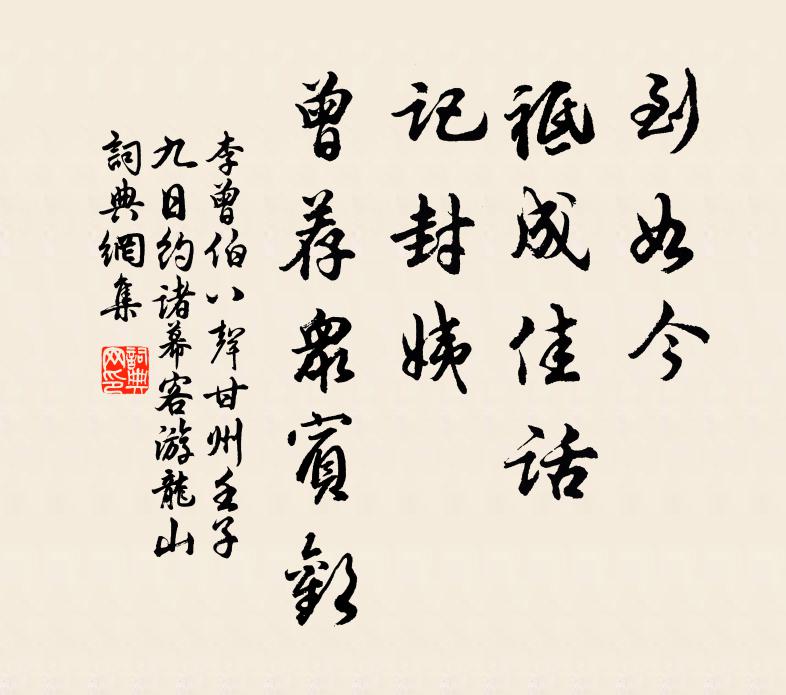 到如今
祗成佳话
记封姨
曾荐眾賓歡
李曾伯八聲甘州壬子
九日約諸幕客游龍山
詞典網集
詞典网印